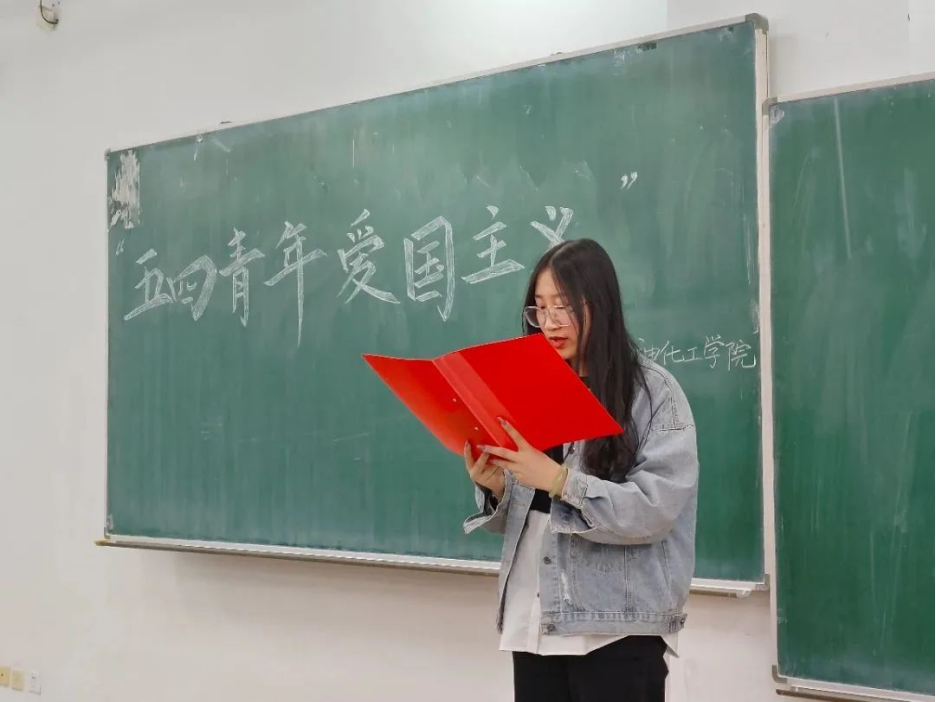 “五四青年爱国主义”
化工学院